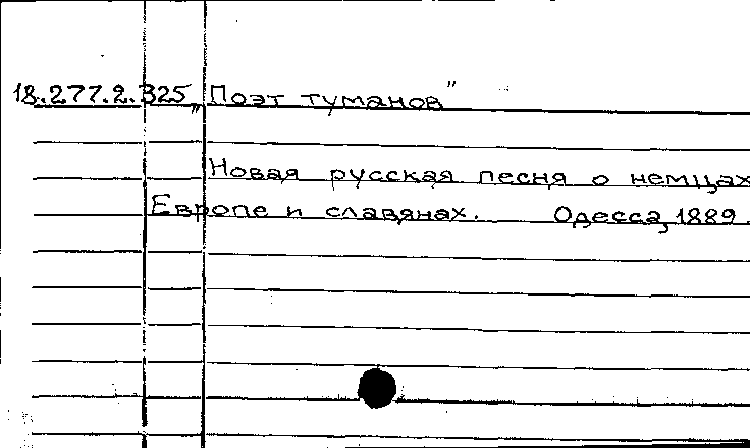 18.277.2.325 „Поэт туманов"
Новая русская песня о немцах
Европе и славянах. Одесса, 1889.